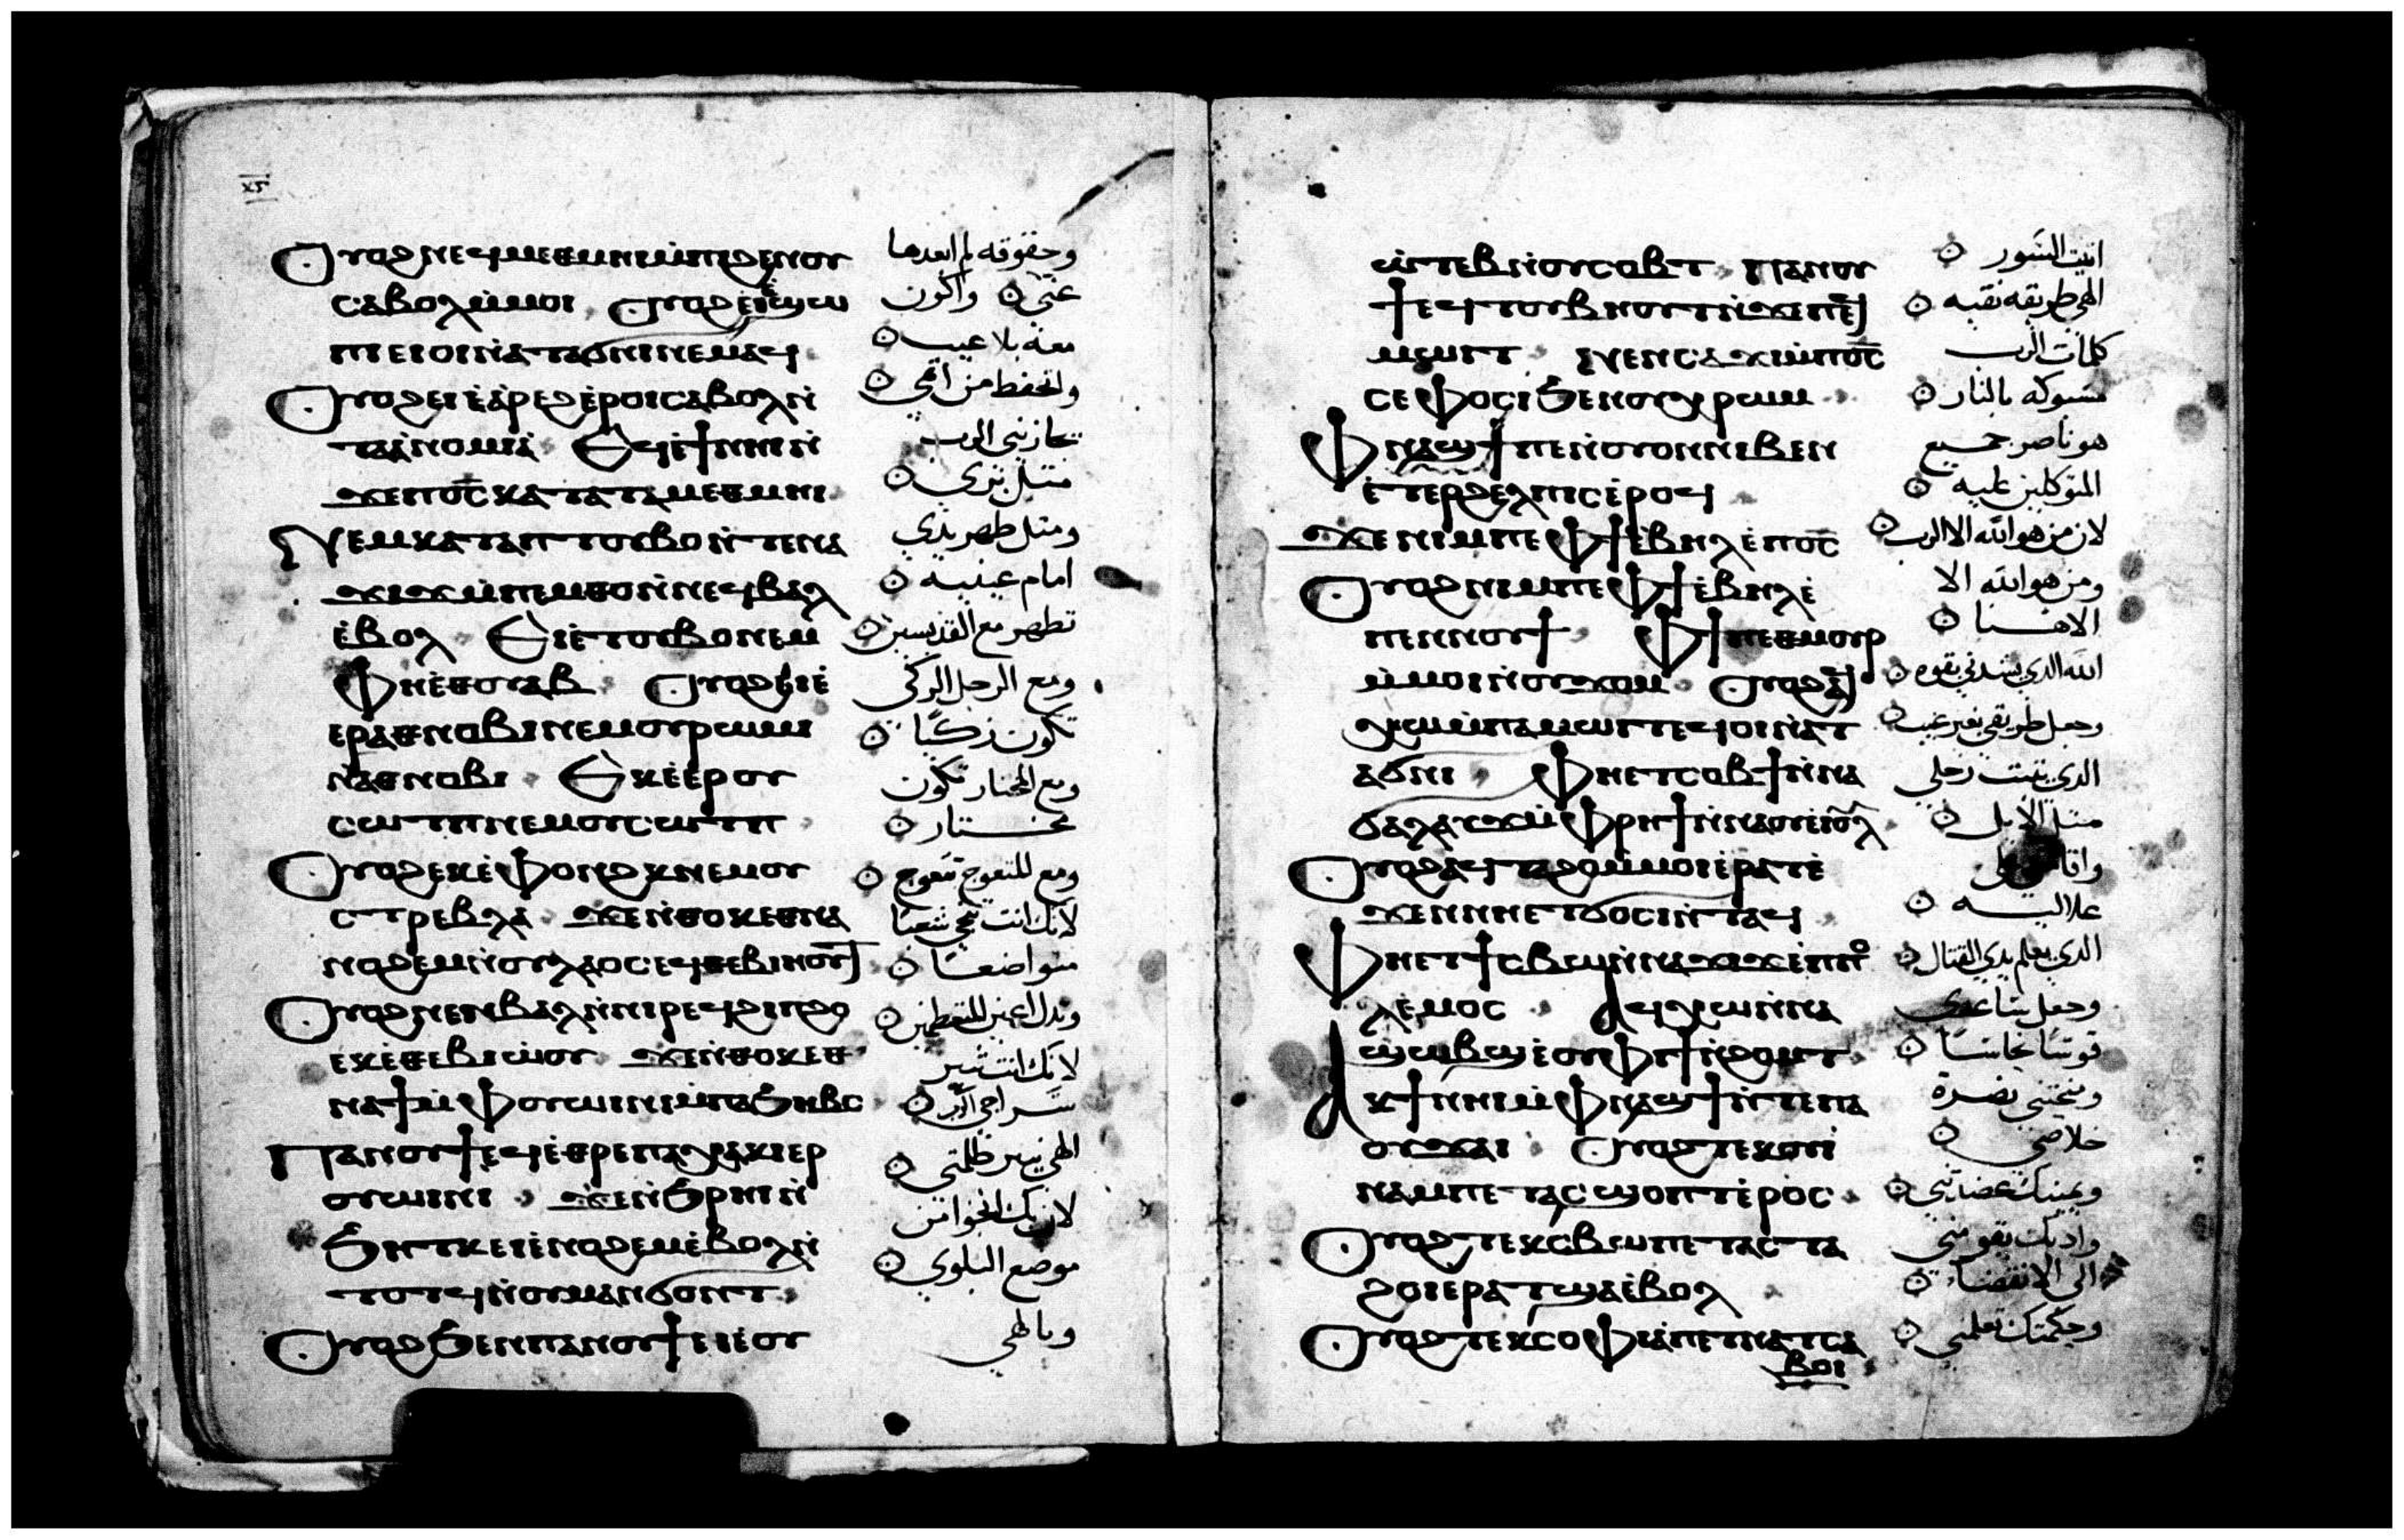 ⲟⲩⲟϩ ⲛⲉϥⲙⲉⲑⲙⲏⲓ ⲙ̀ⲡⲓϩⲉⲛⲟⲩ
ⲥⲁⲃⲟⲗ ⲙ̀ⲙⲟⲓ ⲟⲩⲟϩ ⲉⲓⲉ̀ϣⲱ
ⲡⲓ ⲉⲓⲟⲓ ⲛ̀ⲁⲧⲁϭⲛⲓ ⲛⲉⲙⲁϥ
ⲟⲩⲟϩ ⲉⲓⲉ̀ⲁ̀ⲣⲉϩ ⲉ̀ⲣⲟⲓ ⲥⲁⲃⲟⲗ ⲛ̀
ⲧⲁⲁ̀ⲛⲟⲙⲓⲁ̀ ⲉϥⲉ̀ϯⲛⲏⲓ ⲛ̀
ϫⲉⲡⲟ̅ⲥ̅ ⲕⲁⲧⲁ ⲧⲁⲙⲉⲑⲙⲏⲓ
ⲛⲉⲙ ⲕⲁⲧⲁ ⲡⲧⲟⲩⲃⲟ ⲛ̀ⲧⲉⲛⲁ
ϫⲓϫ ⲙ̀ⲡⲉⲙⲑⲟ ⲛ̀ⲛⲉϥⲃⲁⲗ
ⲉ̀ⲃⲟⲗ ⲉⲕⲉ̀ⲧⲟⲩⲃⲟ ⲛⲉⲙ
ⲫⲏⲉ̀ⲑⲟⲩⲁⲃ ⲟⲩⲟϩ ⲉⲕⲉ̀
ⲉⲣⲁⲑⲛⲟⲃⲓ ⲛⲉⲙ ⲟⲩⲣⲱⲙⲓ
ⲛ̀ⲁⲑⲛⲟⲃⲓ ⲉⲕⲉ̀ⲉⲣⲟⲩ
ⲥⲱⲧⲡ ⲛⲉⲙ ⲟⲩⲥⲱⲧⲡ
ⲟⲩⲟϩ ⲉⲕⲉ̀ⲫⲟⲛϩⲕ ⲛⲉⲙ ⲟⲩ
ⲥⲧⲣⲉⲃⲗⲁ ϫⲉ ⲛ̀ⲑⲟⲕ ⲉⲑⲛⲁ
ⲛⲟϩⲉⲙ ⲛ̀ⲟⲩⲗⲁⲟⲥ ⲉϥⲑⲉⲃⲓⲏⲟⲩⲧ
ⲟⲩⲟϩ ⲛⲉⲛⲃⲁⲗ ⲛ̀ⲛⲓⲣⲉϥϭⲓⲡϩⲟ
ⲉⲕⲉ̀ⲑⲉⲃⲓⲱ̀ⲟⲩ ϫⲉ ⲛ̀ⲑⲟⲕ ⲉⲑ
ⲛⲁϯ ⲙ̀ⲫⲟⲩⲱⲓⲛⲓ ⲙ̀ⲡⲁϧⲏⲃⲥ
ⲡⲁⲛⲟⲩϯ ⲉϥⲉ̀ⲑⲣⲉ ⲡⲁⲭⲁⲕⲓ ⲉⲣ
ⲟⲩⲱⲓⲛⲓ ϫⲉ ⲛ̀ϧⲣⲏⲓ ⲛ̀
ϧⲏⲧⲕ ⲉⲓⲉ̀ⲛⲟϩⲉⲙ ⲉ̀ⲃⲟⲗ ⲛ̀
ⲧⲟⲧϥ ⲛ̀ⲟⲩⲙⲁⲛϭⲟⲛⲧ
ⲟⲩⲟϩ ϧⲉⲛ ⲡⲁⲛⲟⲩϯ ⲉⲓⲉ̀ⲟⲩ
وحقوقه لم ابعدها
عني واكون
معه بلا عيب
واتحفظ من اثمي
يجازيني الرب
مثل بري
ومثل طهر يدي
امام عينيه
تطهر مع القديسين
ومع الرجل الزكي
تكون زكيا
ومع المختار تكون
مختار
ومع المتعوج تتعوج
لانك انت تنجي شعبا
متواضعا
وتذل اعين المتعظمين
لانك انت تنير
سراجي
الهي ينير ظلمتي
لان بك انجوا من
موضع البلوي
وبالهي
ⲱⲧⲉⲃ ⲛ̀ⲟⲩⲥⲟⲃⲧ ⲡⲁⲛⲟⲩ
ϯ ⲉϥⲧⲟⲩⲃⲏⲟⲩⲧ ⲛ̀ϫⲉⲡⲉϥ
ⲙⲱⲓⲧ ⲛⲉⲛⲥⲁϫⲓ ⲙ̀ⲡⲟ̅ⲥ̅
ⲥⲉⲫⲟⲥⲓ ϧⲉⲛ ⲟⲩⲭⲣⲱⲙ
ⲫⲛⲁϣϯ ⲡⲉ ⲛ̀ⲟⲩⲟⲛ ⲛⲓⲃⲉⲛ
ⲉ̀ⲧⲉⲣϩⲉⲗⲡⲓⲥ ⲉ̀ⲣⲟϥ
ϫⲉ ⲛⲓⲙ ⲡⲉ ⲫϯ ⲉ̀ⲃⲏⲗ ⲉ̀ⲡⲟ̅ⲥ̅
ⲟⲩⲟϩ ⲛⲓⲙ ⲡⲉ ⲫϯ ⲉ̀ⲃⲏⲗ ⲉ̀
ⲡⲉⲛⲛⲟⲩϯ ⲫϯ ⲡⲉⲑⲙⲟⲩⲣ
ⲙ̀ⲙⲟⲓ ⲛ̀ⲟⲩϫⲟⲙ ⲟⲩⲟϩ ⲁϥ
ⲭⲱ ⲙ̀ⲡⲁⲙⲱⲓⲧ ⲉϥⲟⲓ ⲛ̀ⲁⲧ
ⲁϭⲛⲓ ⲫⲏⲉⲧⲥⲟⲃϯ ⲛ̀ⲛⲁ
ϭⲁⲗⲁⲩϫ ⲙ̀ⲫⲣⲏϯ ⲛ̀ⲛⲁ ⲟⲩⲉⲓⲟⲩⲗ
ⲟⲩⲟϩ ⲁϥⲧⲁϩⲟ ⲙ̀ⲙⲟⲓ ⲉ̀ⲣⲁⲧ ⲉ̀
ϫⲉⲛ ⲛⲏⲉⲧϭⲟⲥⲓ ⲛ̀ⲧⲁϥ
ⲫⲏⲉⲧϯⲥⲃⲱ ⲛ̀ⲛⲁϫⲓϫ ⲉ̀ⲡⲡⲟ
ⲗⲉⲙⲟⲥ ⲁϥⲭⲱ ⲛ̀ⲛⲁ
ϣⲱⲃϣ ⲉ̀ⲟⲩⲫⲓϯ ⲛ̀ϩⲟⲙⲧ
ⲁⲕϯ ⲛⲏⲓ ⲙ̀ⲫⲛⲁϣϯ ⲛ̀ⲧⲉ ⲡⲁ
ⲟⲩϫⲁⲓ ⲟⲩⲟϩ ⲧⲉⲕⲟⲩⲓ̀
ⲛⲁⲙ ⲡⲉⲧⲁⲥϣⲟⲡⲧ ⲉ̀ⲣⲟⲥ
ⲟⲩⲟϩ ⲧⲉⲕⲥⲃⲱ ⲡⲉⲧⲁⲥⲧⲁ
ϩⲟⲓ ⲉⲣⲁⲧ ϣⲁⲉ̀ⲃⲟⲗ
ⲟⲩⲟϩ ⲧⲉⲕⲥⲟⲫⲓⲁ̀ ⲡⲉⲧⲛⲁⲧⲥⲁ
ⲃⲟⲓ
اثب السور
الهي طريقه نقيه
كلمات الرب
مسبوكه بالنار
هو ناصر جميع
المتوكلين عليه
لان من هو الله الا الرب
ومن هو الله الا
الاهنا
الله الذي يشددني بقوه
وجعل طريقي بغير عيب
الذي يثبت رجلي
مثل الايل
علاليه
الذي يعلم يدي القتال
وجعل ساعدي
قوسا نحاسا
ومنحتني نصرة
خلاصي
ويمينك عضدتني
وادبك يقومني
الى الانقضاء
وحكمتك تعلمني